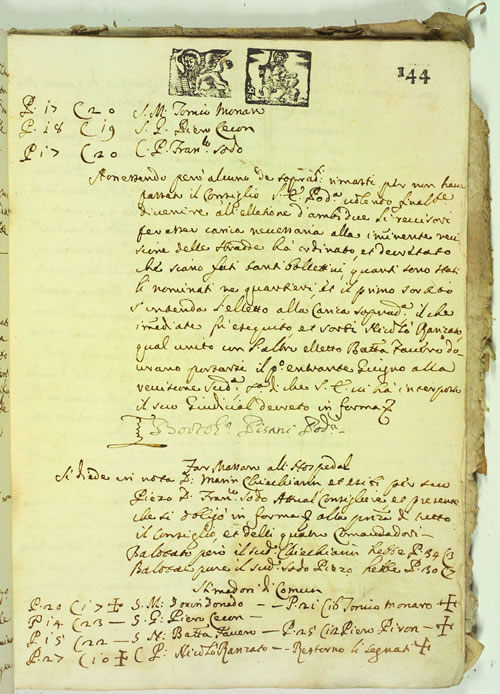 144
P: 17 C 20 S. M. Tomio Monaro
P: 18 C 19 S. P: Piero Cecon
P: 17 C 20 C. P. Fran.co Sodo
Non essendo però alcuno de soprad.i rimasti per non haver
passato il Consiglio S. E. Pod.à volendo
divenire all'elletione d'ambidue li revisori
carica necessaria alla iminente revi
sione delle Strade hà ordinato, et decretato
che siano fati tanti bollettini, quanti sono stati
li nominati ne quartieri, et il primo sortito
s'intenda l'elletto alla Carica soprad.a il che
imediate fù eseguito et sortì Nicolò Ranzato
qual unito con l'altro elletto Batta Favero do
vrano portarsi il p.o entrante Giugno alla
revisione sud.a di che S. E. vi hà interposto
il suo Giudicial decreto in forma
Bortol.o Pisani Pod.à
Far Massaro all'Hospedal
Si diede in nota P: Marin Chiechiarin et esibì per suo
Piezo P: Fran.co Sodo Attual Consigliere et presente
che si obligò in forma alla pres.a di tutto
il Consiglio, et delli quatro Comandadori
Balotato però il sud.o Chiechiarin hebbe P: 34 C 3
Balotato pure il sud.o Sodo Piezo hebbe P: 30 C 7
Stimadori di Comun
P: 20 C 17 ✠ S. M: Donado — P: 21 C 16 Tomio Monaro ✠
P: 14 C 23 — S. P: Piero Cecon —
P: 15 C 22 — S. N: Batta Favero — P: 25 C 12 Piero Piron — ✠
P: 27 C 10 ✠ C. P: Nicolò Ranzato — Restorno li segnati ✠